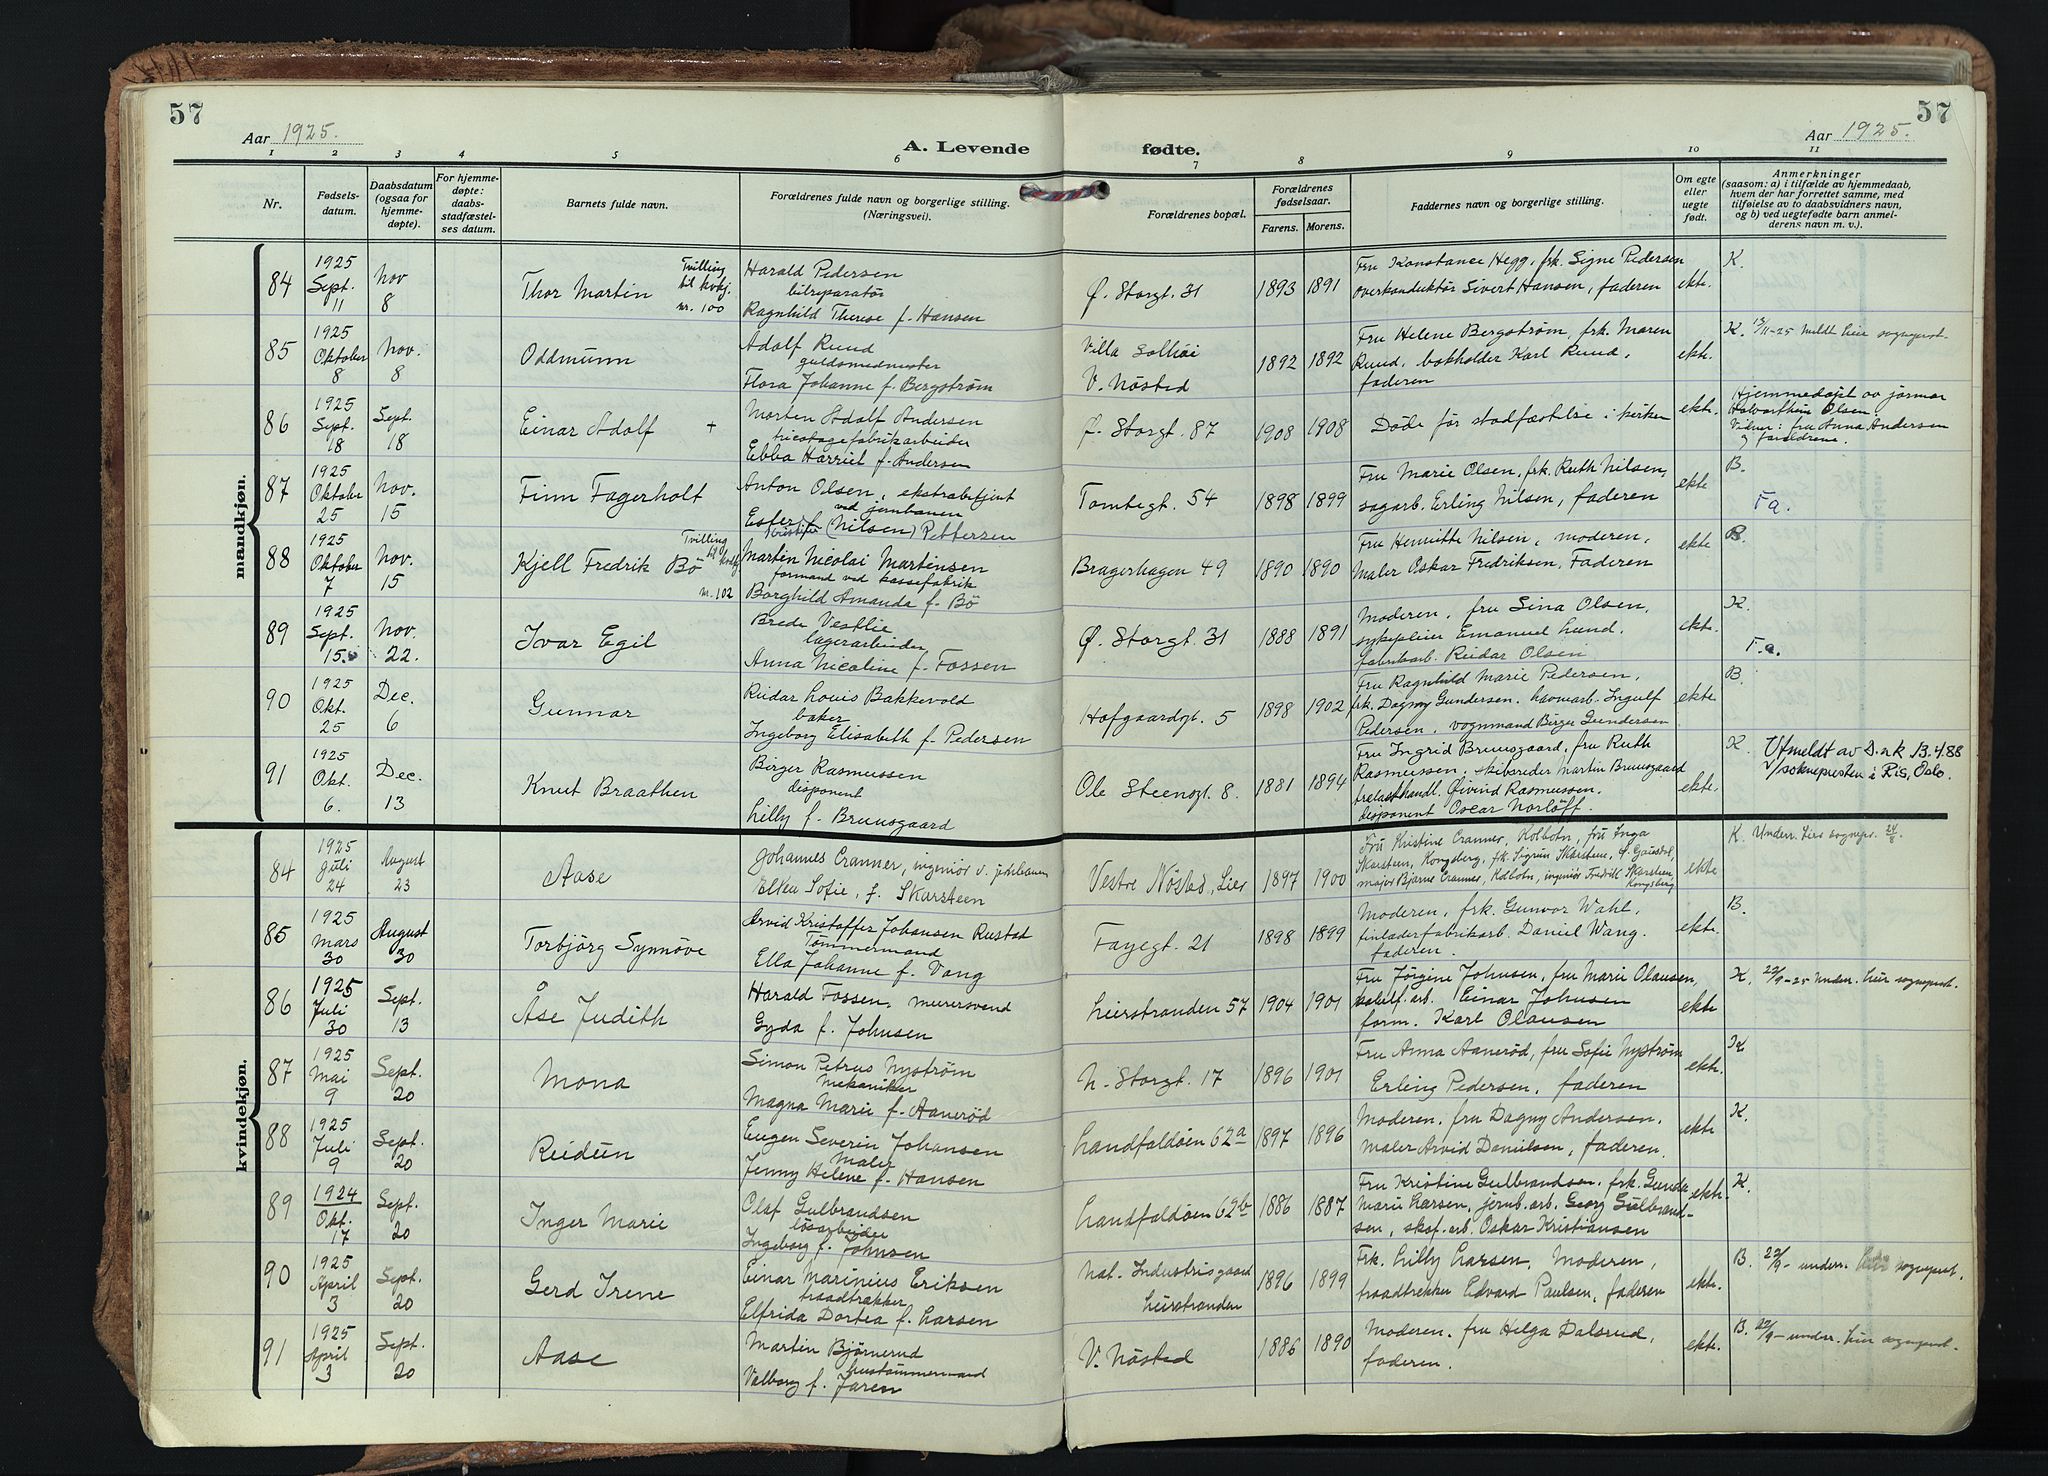 57
57
Aar 1925.
Aar 1925.
A. Levende
fødte.
1 2 3 4 5 6 7 8 9 10 11
Nr.
Fødsels-
datum.
Daabsdatum
(ogsaa for
hjemme-
døpte).
For hjemme-
døpte:
daabs-
stadfæstel-
ses datum.
Barnets fulde navn.
Forældrenes fulde navn og borgerlige stilling.
(Næringsvei).
Forældrenes bopæl.
Forældrenes
fødselsaar.
Farens. Morens.
Faddernes navn og borgerlige stilling.
Om egte
eller
uegte
født.
Anmerkninger
(saasom: a) i tilfælde av hjemmedaab,
hvem der har forrettet samme, med
tilføielse av to daabsvidners navn,
og b) ved uegtefødte barn anmel-
derens navn m. v.).
mandkjøn.
84
1925
Sept.
11
Nov
8
Thor Martin
Tvilling
til kvkj.
nr. 100
Harald Pedersen
bilreparatør
Ragnhild Therese f. Hansen
Ø. Storgt. 31
1893 1891
Fru Konstance Hegg, frk. Signe Pedersen
overkonduktør Sivert Hansen, faderen
ekte.
K.
85
1925
Oktober
8
Nov.
8
Oddmunn
Adolf Ruud
guldsmedmester
Flora Johanne f. Bergstrøm
Villa Solhøi
V. Nøsted
1892 1892
Fru Helene Bergstrøm, frk. Maren
Ruud, bokholder Karl Ruud,
faderen
ekte.
K. 13/11-25 meldt Lier sogneprest.
86
1925
Sept.
18
Sept.
18
Einar Adolf +
Morten Adolf Andersen
tricotagefabrikarbeider
Ebba Harriet f. Andersen
Ø. Storgt. 87
1908 1908
Døde før stadfæstelse i kirken
ekte.
Hjemmedøpt av jormor
Olsen.
Vidner: fru Anna Andersen
og forældrene.
87
1925
Oktober
25
Nov.
15
Finn Fagerholt
Anton Olsen, ekstrabetjent
ved jernbanen
Ester f. (Nilsen) Pettersen
Tomtegt. 54
1898 1899
Fru Marie Olsen, frk. Ruth Nilsen,
sagarb. Erling Nilsen, faderen
ekte
B.
Fa.
88
1925
Oktober
7
Nov.
15
Kjell Fredrik Bö
Tvilling
til kvkj
nr. 102
Martin Nicolai Martinsen
formand ved kassefabrik
Borghild Amanda f. Bö
Bragerhagen 49
1890 1890
Fru Henriette Nilsen, moderen,
maler Oskar Fredriksen, Faderen
ekte
B.
89
1925
Sept.
15.
Nov.
22.
Ivar Egil
Brede Vestlie
lagerarbeider
Anna Nicoline f. Fossen
Ø. Storgt. 31
1888 1891
Moderen, fru Sina Olsen,
sykepleier Emanuel Lund.
fabrikarb. Reidar Olsen
ekte.
K.
F.a.
90
1925
Okt.
25
Dec.
6
Gunnar
Reidar Louis Bakkevold
baker
Ingeborg Elisabeth f. Pedersen
Hofgaardsgt. 5
1898 1902
Fru Ragnhild Marie Pedersen,
frk. Dagny Gundersen, havnearb. Ingulf
Pedersen, vognmand Birger Gundersen
ekte
B.
91
1925
Okt.
6.
Dec.
13
Knut Braathen
Birger Rasmussen
disponent
Lilly f. Bruusgaard
Ole Steensgt. 8.
1881 1894
Fru Ingrid Bruusgaard, fru Ruth
Rasmussen, skibsreder Martin Bruusgaard
trelasthandl. Øivind Rasmussen.
disponent Oscar Norløff.
ekte.
K. Utmeldt av D.n.k 13.4.88
v/soknepresten i Ris, Oslo.
kvindekjøn.
84
1925
Juli
24
August
23
Aase
Johannes Cranner, ingeniør v. jernbanen
Elken Sofie, f. Skarsteen
Vestre Nøsted, Lier
1897 1900
Fru Kristine Cranner, Kolbotn, fru Inga
Skarsteen, Kongsberg, frk. Sigrun Skarsteen, Ø. Gausdal,
major Bjarne Cranner, Kolbotn, ingeniør Fredrik Skarsteen,
Kongsberg
ekte
K. Underr. Liers sognepr. 24/8.
85
1925
Mars
30
August
30
Torbjörg Synnöve
Arvid Kristoffer Johansen Rustad
Tömmermand
Ella Johanne f. Vang
Fayegt. 21
1898 1899
Moderen, frk. Gunvor Wahl,
fabrikarb. Daniel Wang.
faderen.
ekte.
B.
86
1925
Juli
30
Sept.
13
Åse Judith
Harald Fossen, murersvend
Gyda f. Johnsen
Lierstranden 57
1904 1901
Fru Jørgine Johnsen, fru Marie Olausen,
arb. Einar Johnsen
form. Karl Olausen
ekte
K. 22/9-25 Underr. Lier sogneprst.
87
1925
Mai
9
Sept.
20
Mona
Simon Petrus Nyström
Mekaniker
Magna Marie f. Aanerød
N. Storgt. 17
1896 1901
Fru Anna Aanerød, fru Sofie Nyström
Erling Pedersen, faderen
ekte.
K
88
1925
Juli
9
Sept.
20
Reidun
Eugen Severin Johansen
Maler
Jenny Helene f. Hansen
Landfaldøen 62a
1897 1896
Moderen, fru Dagny Andersen,
maler Arvid Danielsen, faderen.
ekte
K.
89
1924
Okt.
17
Sept.
20
Inger Marie
Olaf Gulbrandsen
løsarbeider
Ingeborg f. Johnsen
Landfaldøen 62b
1886 1887
Fru Kristine Gulbrandsen, frk. Gunda
Marie Larsen, jernb.arb. Georg Gulbrand-
sen, skof.arb. Oskar Kristiansen
ekte.
K.
90
1925
April
3
Sept.
20
Gerd Irene
Einar Marinius Eriksen
traadtrækker
Elfrida Dortea f. Larsen
Nat. Industrisgaard
Lierstranden
1896 1899
Frk. Lilly Larsen, Moderen,
traadtrekker Edvard Paulsen, faderen
ekte.
B. 22/9- underr. Lier sogneprst.
91
1925
April
3
Sept.
20
Aase
Martin Bjørnerud
hustømmermand
Valborg f. Jaren
V. Nøsted
1886 1890
Moderen, fru Helga Dalsrud,
faderen.
ekte.
B. 22/9- underr. Lier sogneprst.